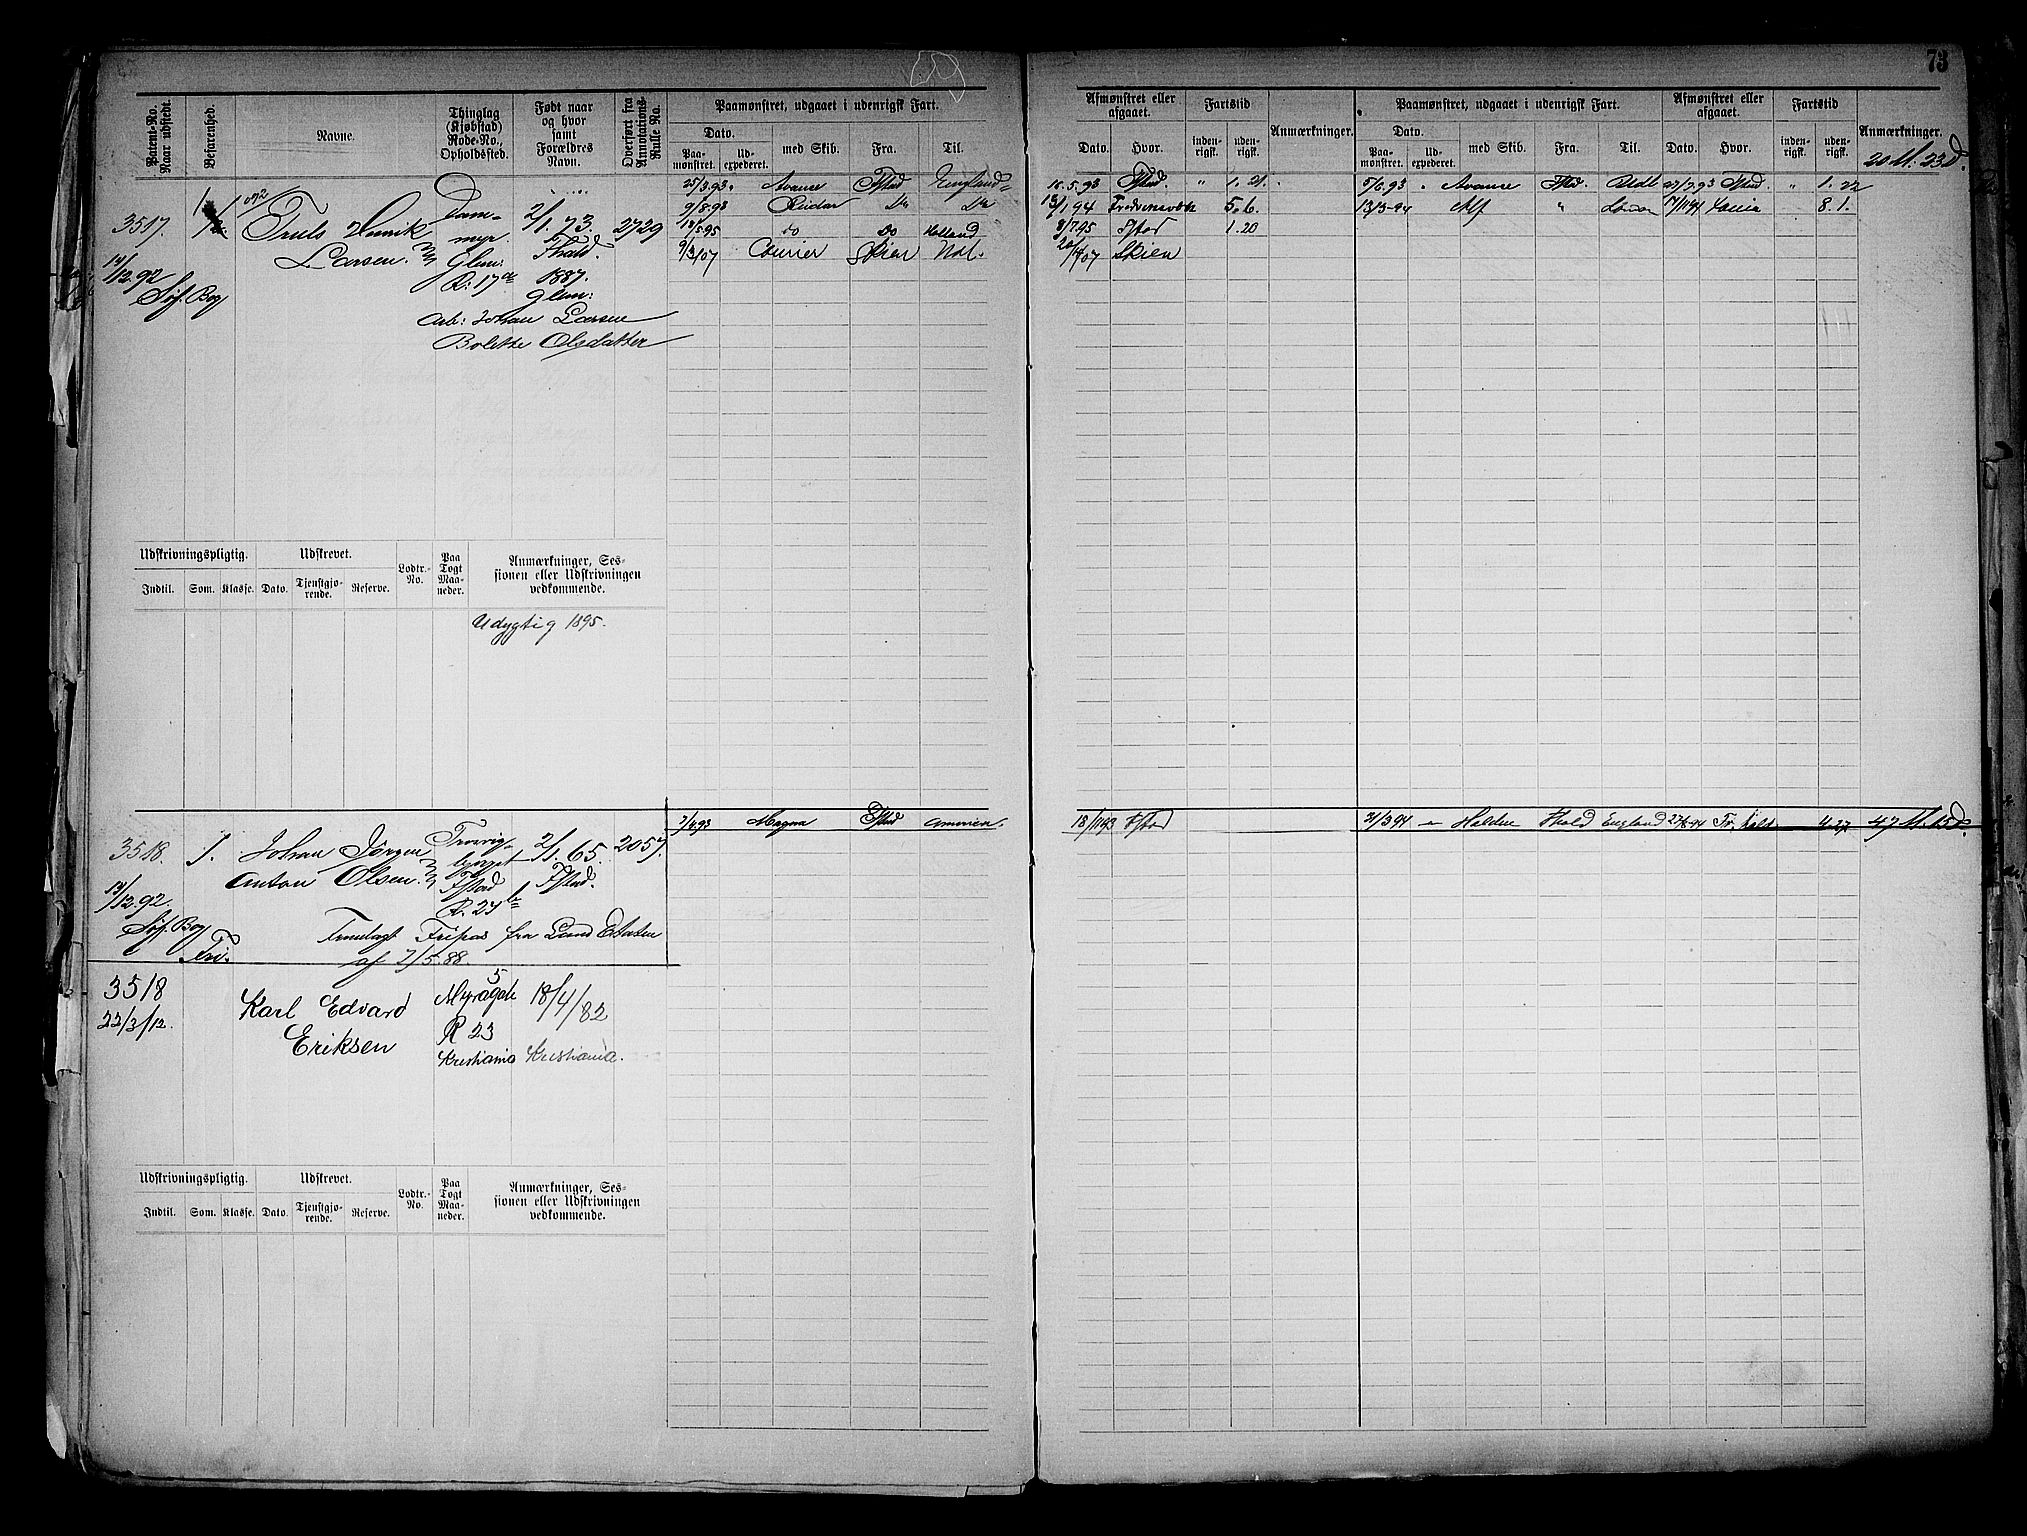 73
Patent-No. Naar udstedt.
Befarenhed.
Navne.
Thinglag (Kjøbstad) Rode-No., Opholdssted.
Født naar og hvor samt Forældres Navn.
Overført fra Annotations-Rulle No.
Paamønstret, udgaaet i udenrigsk Fart.
Dato.
Paa-mønstret.
Ud-expederet.
med Skib.
Fra.
Til.
Afmønstret eller afgaaet.
Dato.
Hvor.
Fartstid
inden-rigsk.
uden-rigsk.
Anmærkninger.
Paamønstret, udgaaet i udenrigsk Fart.
Dato.
Paa-mønstret.
Ud-expederet.
med Skib.
Fra.
Til.
Afmønstret eller afgaaet.
Dato.
Hvor.
Fartstid
inden-rigsk.
uden-rigsk.
Anmærkninger.
20 M. 23 d.
3517.
14/12.92
Søf. Bog
Truls Henrik
Larsen.
Dam-
myr
Glem:
R: 17
2/1.73.
Fhald.
1887.
Glem:
2729
Arb: Johan Larsen
Bolette Olsdatter
25/3.93 Avanse Fstad England
9/8.93 Reidar Do Do
14/5.95 do Do Holland
9/3/07 Courier Skien
15.5.93 Fstad. " 1.21.
13/1.94 5.6.
8/7.95 Fstad 1.20
/07 Skien
5/6.93 " Avanse Fstad. 27/7.93 Fstad. " 1.22
13/3-94 Alf " 8.1.
Udskrivningspligtig.
Indtil.
Som.
Klasse.
Udskrevet.
Dato.
Tjenstgjø-rende.
Reserve.
Lodtr.-No.
Paa Togt Maa-neder.
Anmærkninger, Ses-sionen eller Udskrivningen vedkommende.
Udygtig 1895.
3518.
14/12.92.
Søf. Bog
Fri.
1.
Johan Jørgen
Anton Olsen.
Fstad
R. 23
2/1.65.
Fstad.
2057.
Fremlagt Fripas fra Lund Etaten
af 7/5.88.
7/4.93 Magna Fstad
18/11 93 Fstad
31/3 94 Halden Fhald England 4.27 47 M. 15 d.
3518
22/3/12.
Karl Edvard
Eriksen
Myragate 5
R 23
Kristiania
18/4/82
Kristiania.
Udskrivningspligtig.
Indtil.
Som.
Klasse.
Udskrevet.
Dato.
Tjenstgjø-rende.
Reserve.
Lodtr.-No.
Paa Togt Maa-neder.
Anmærkninger, Ses-sionen eller Udskrivningen vedkommende.